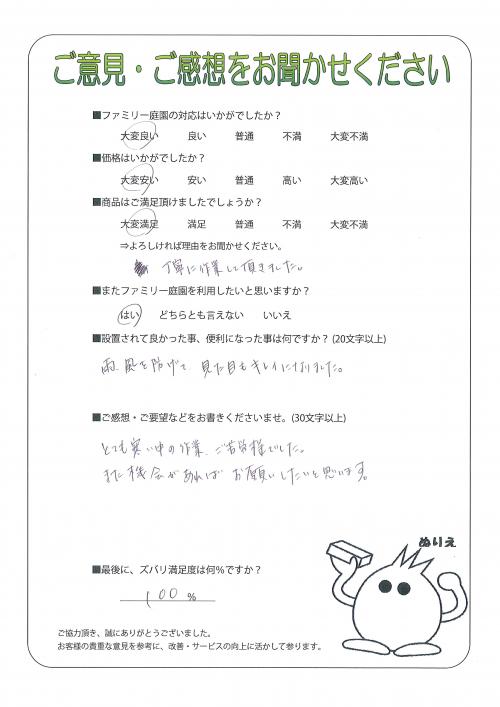 ご意見・ご感想をお聞かせください
■ファミリー庭園の対応はいかがでしたか？
大変良い 良い 普通 不満 大変不満
■価格はいかがでしたか？
大変安い 安い 普通 高い 大変高い
■商品はご満足頂けましたでしょうか？
大変満足 満足 普通 不満 大変不満
⇒よろしければ理由をお聞かせください。
丁寧に作業して頂きました。
■またファミリー庭園を利用したいと思いますか？
はい どちらとも言えない いいえ
■設置されて良かった事、便利になった事は何ですか？(20文字以上)
雨、風を防げて 見た目もキレイになりました。
■ご感想・ご要望などをお書きくださいませ。(30文字以上)
とても寒い中の作業、ご苦労様でした。
また機会があれば お願いしたいと思います。
ぬりえ
■最後に、ズバリ満足度は何％ですか？
100 %
ご協力頂き、誠にありがとうございました。
お客様の貴重な意見を参考に、改善・サービスの向上に活かして参ります。